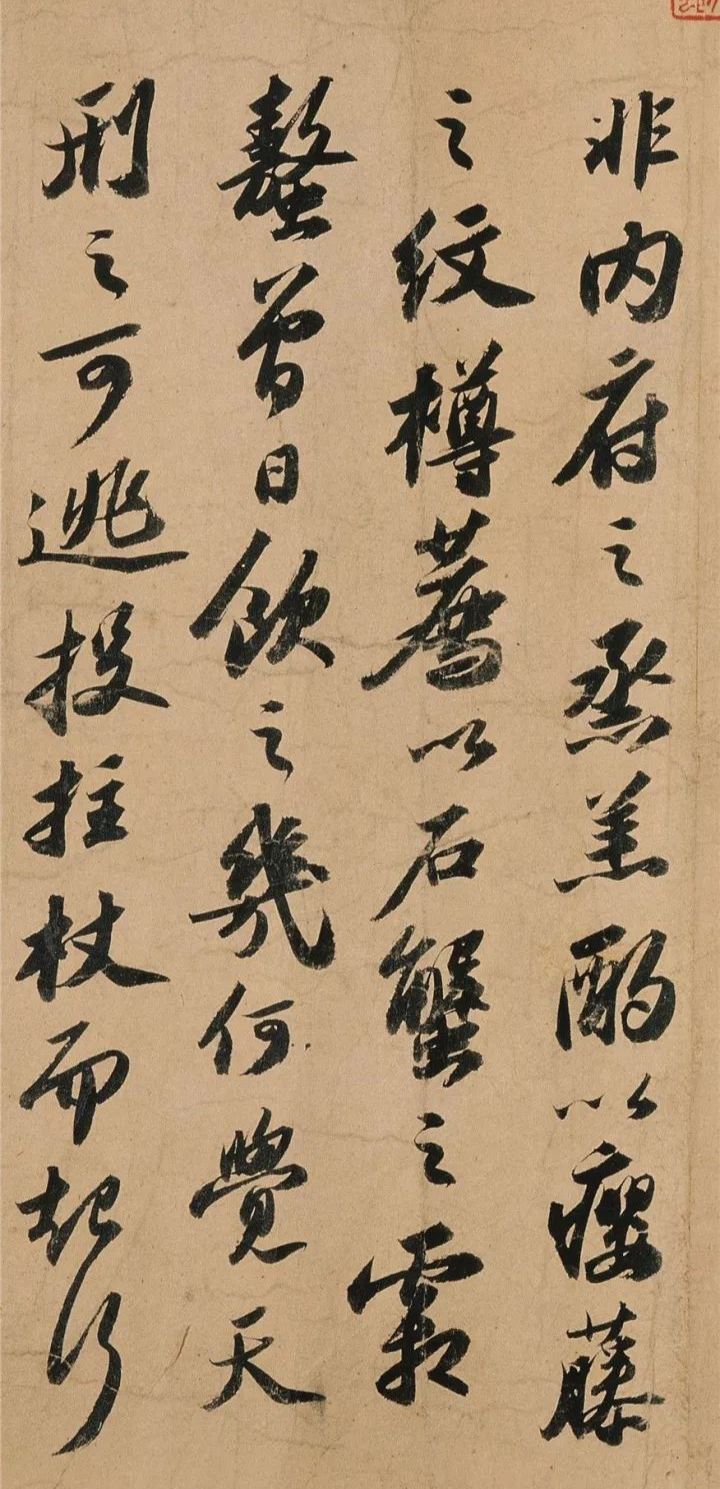 非内府之烝羔酌以癭藤
之纹樽薦以石蟹之霜
螯曾日飲之幾何覺天
刑之可逃投拄杖而起行